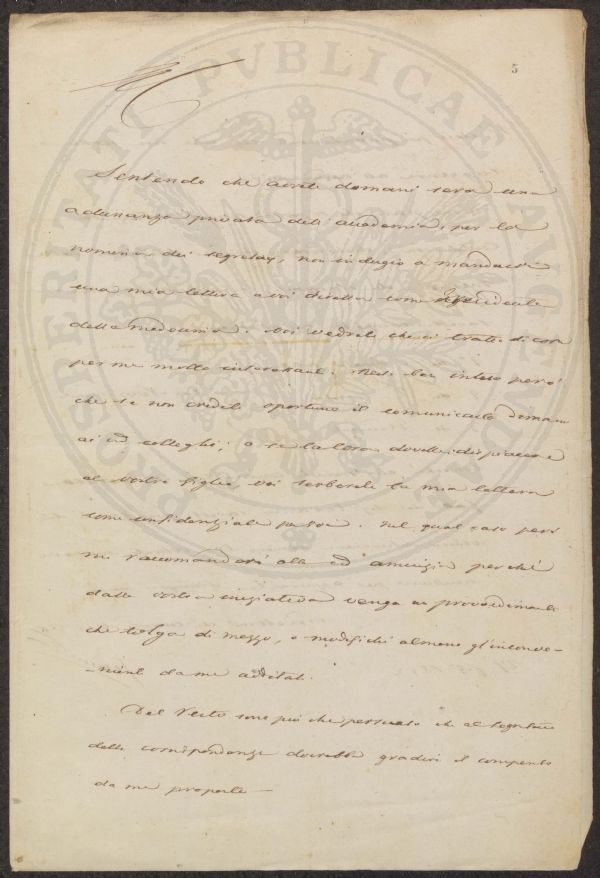 5
PROSPERITATI PVBLICAE AVGENDAE
Sentendo che avrete domani sera una
adunanza privata dell'accademia, per la
nomina dei segretarj, non indugio a mandarvi
una mia lettera a voi diretta come
della medesima. Voi vedrete che si tratta di cosa
per me molto interessante. Resta ben inteso però
che se non credete opportuno il comunicarla domani
ai colleghi, o se la cosa dovesse dispiacere
al vostro figlio, voi serberete la mia lettera
come confidenziale per voi. Nel qual caso però
mi raccomanderei alla amicizia perché
dalla vostra iniziativa venga un provvedimento
che tolga di mezzo, o modifichi almeno gl'inconve-
-nienti da me additati.
Del resto sono più che persuaso che al segretario
della corrispondenza dovrebbe gradire il compenso
da me proposto —